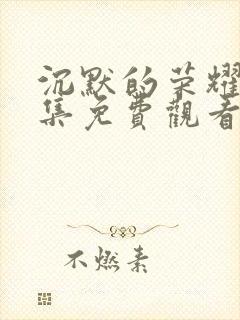 沉默的荣耀
集免費觀看
不燃素